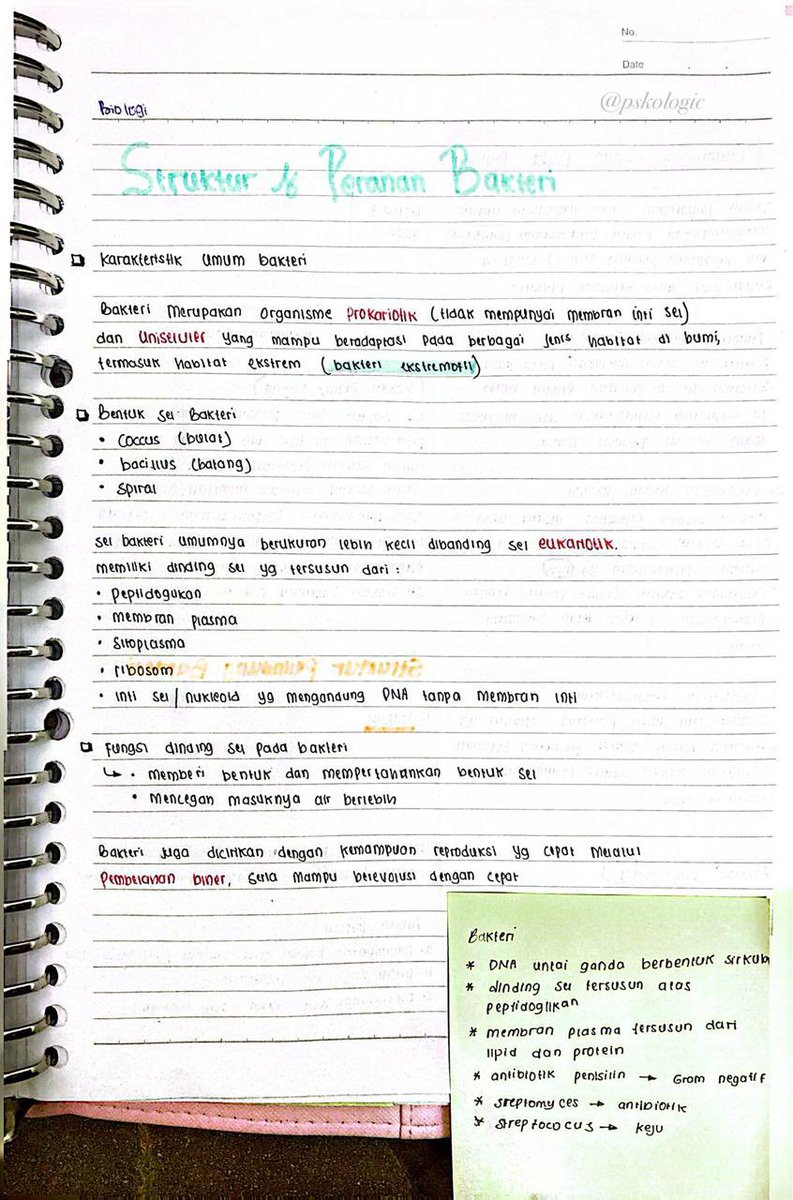 No.
Date
Biologi
@pskologic
Struktur & Peranan Bakteri
karakteristik umum bakteri
Bakteri merupakan organisme prokariotik (tidak mempunyai membran inti sel)
dan uniseluler yang mampu beradaptasi pada berbagai jenis habitat di bumi,
termasuk habitat ekstrem (bakteri ekstremofil)
Bentuk sel Bakteri
• coccus (bulat)
• bacillus (batang)
• spiral
sel bakteri umumnya berukuran lebih kecil dibanding sel eukariotik.
memiliki dinding sel yg tersusun dari :
• peptidoglikan
• membran plasma
• sitoplasma
• ribosom
• inti sel / nukleoid yg mengandung DNA tanpa membran inti
fungsi dinding sel pada bakteri
↳ • memberi bentuk dan mempertahankan bentuk sel
• Mencegah masuknya air berlebih
Bakteri juga dicirikan dengan kemampuan reproduksi yg cepat melalui
Pembelahan biner, serta mampu berevolusi dengan cepat
Bakteri
* DNA untai ganda berbentuk
* dinding sel tersusun atas
peptidoglikan
* membran plasma tersusun dari
lipid dan protein
* antibiotik penisilin → Gram negatif
* sreptomyces → antibiotik
* streptococus → keju